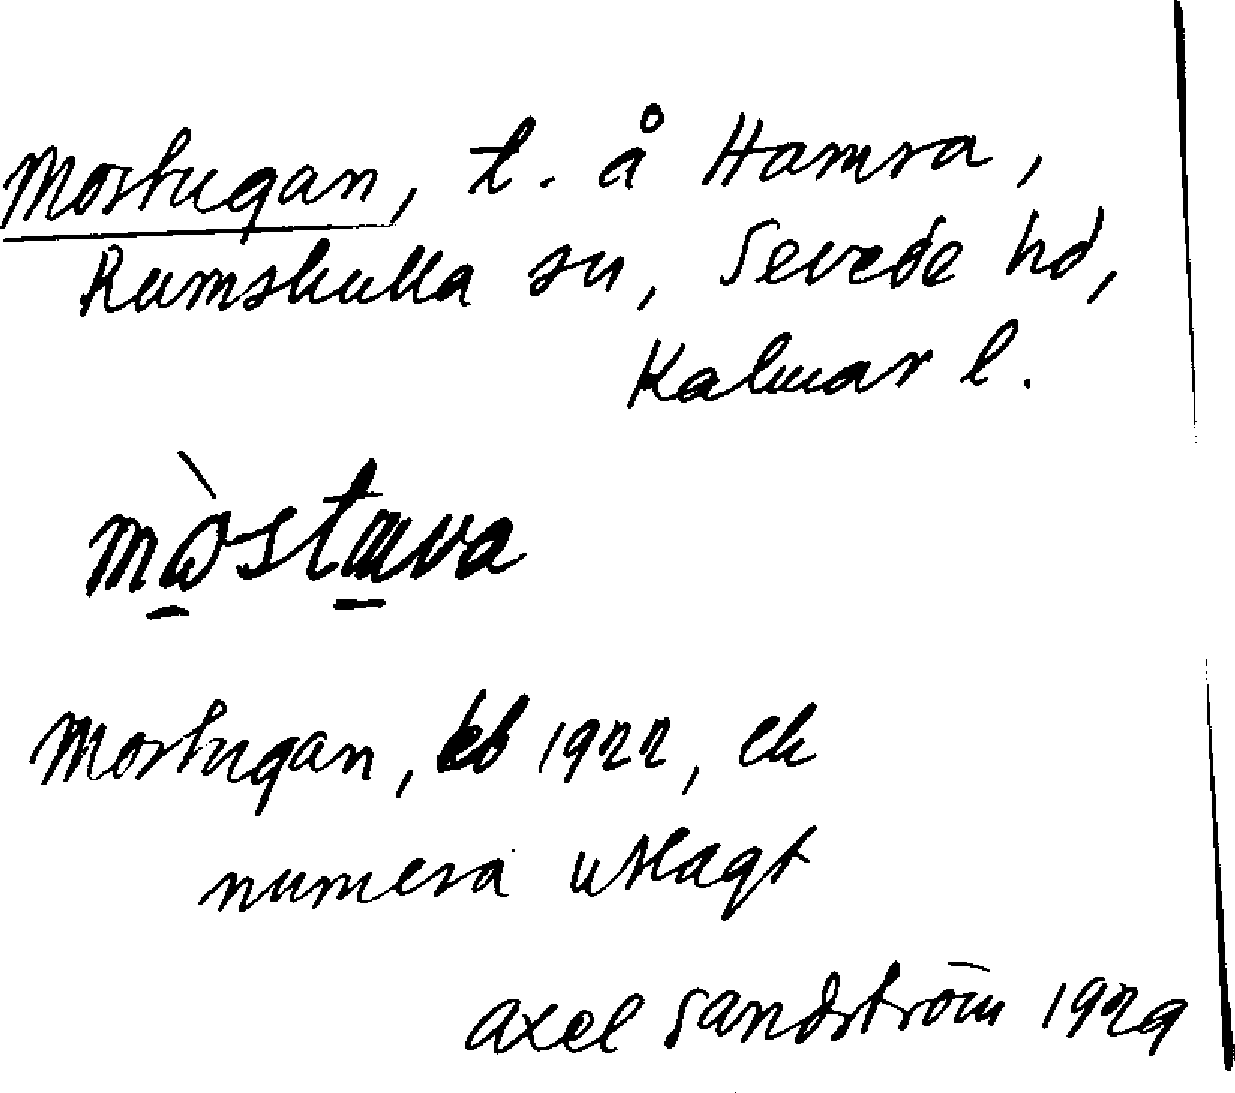 Mostugan, t. å Hamra,
Rumskulla sn, Sevede hd,
Kalmar l.
Mostugan, kb 1922, ek
numera utlagt
Axel Sandström 1929